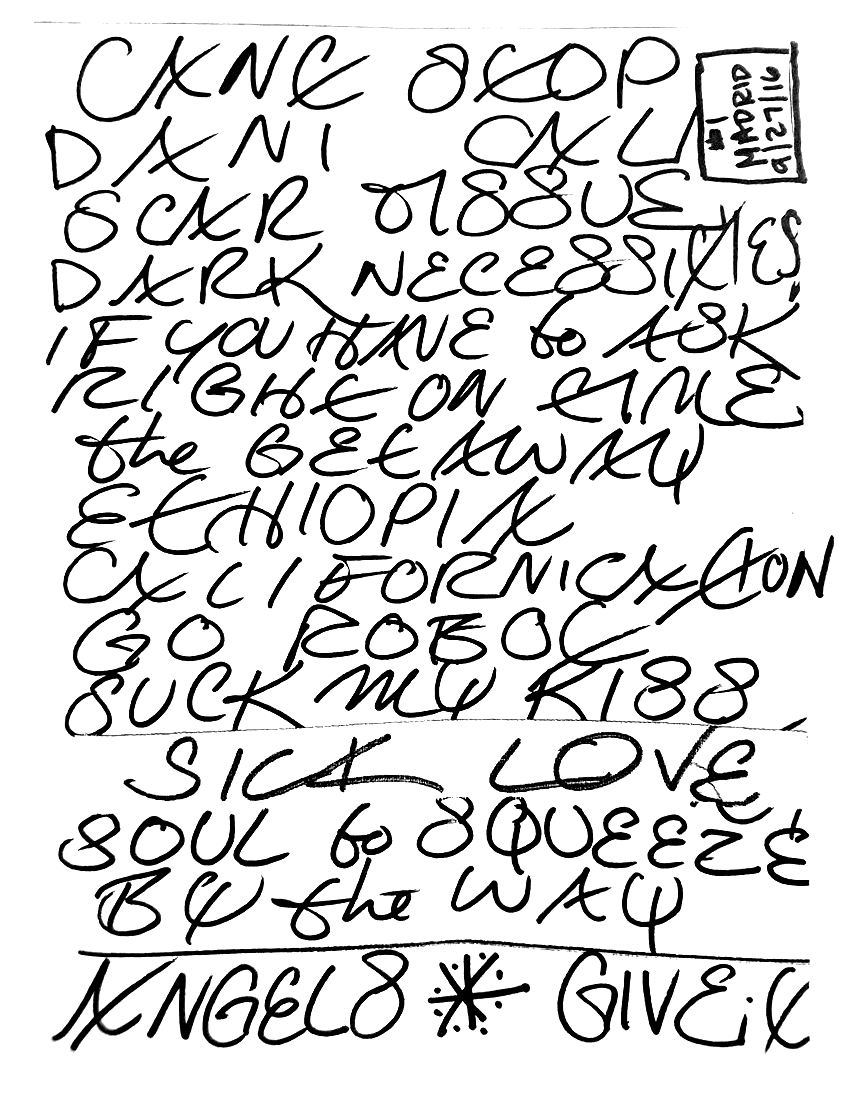 CAN'T STOP
#1
MADRID
9/27/16
DANI CALI
SCAR TISSUE
DARK NECESSITIES
IF YOU HAVE to ASK
RIGHT ON TIME
the GETAWAY
ETHIOPIA
CALIFORNICATION
GO ROBOT
SUCK MY KISS
SICK LOVE
SOUL to SQUEEZE
BY the WAY
ANGELS * GIVE it